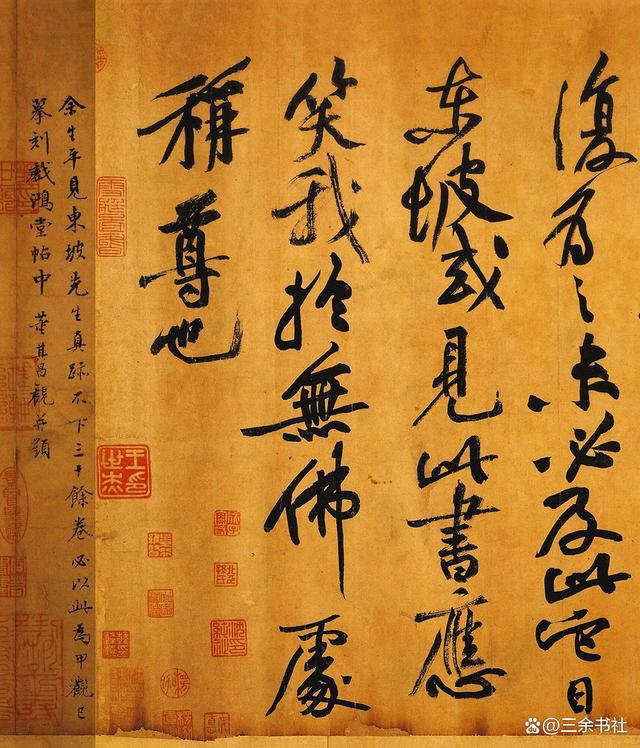 復為之未必及此它日
東坡或見此書應
笑我於無佛處
稱尊也
余生平見東坡先生真跡不下三十餘卷必以此為甲觀已
摹刻戲鴻堂帖中 董其昌觀并題
@三余书社